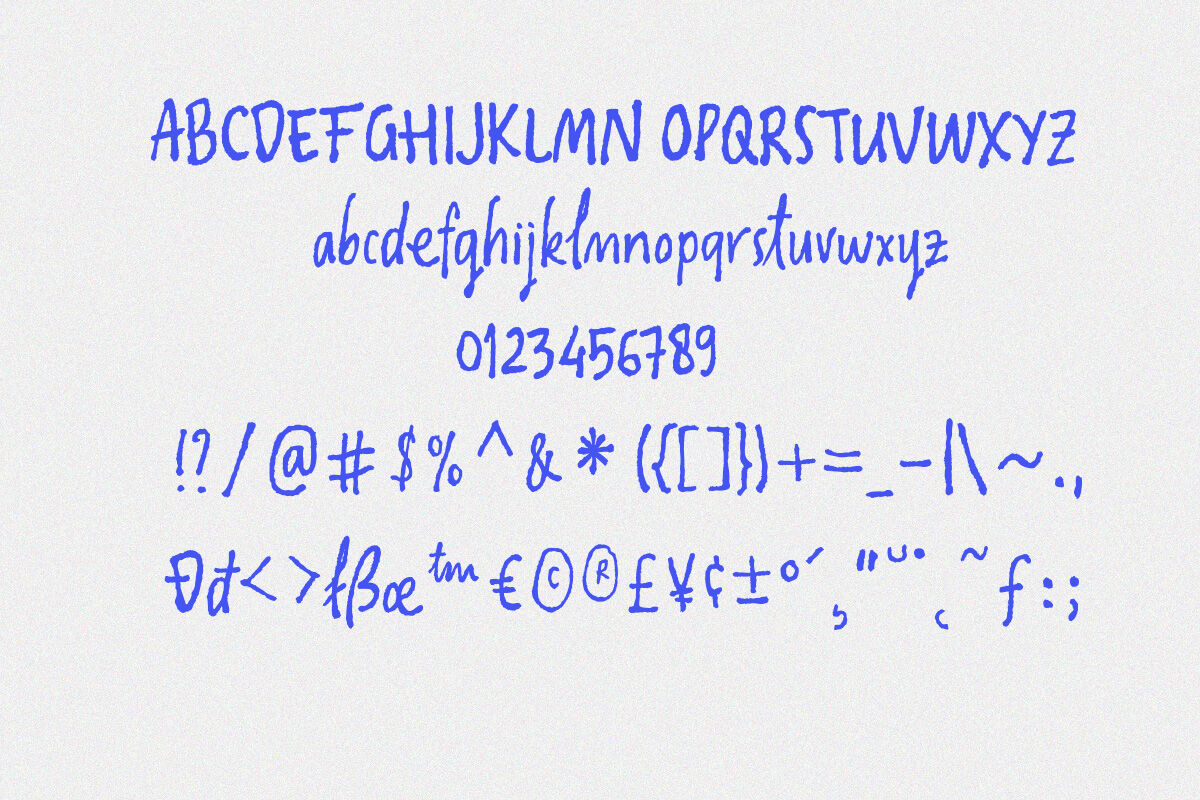 ABCDEFGHIJKLMN OPQRSTUVWXYZ
abcdefghijklmnopqrstuvwxyz
0123456789
!?/@#$%^&*({[]})+=_-|\~.,
Đđ<>łßœ™€©®£¥¢±°´¸"˘˙˛˜ƒ:;